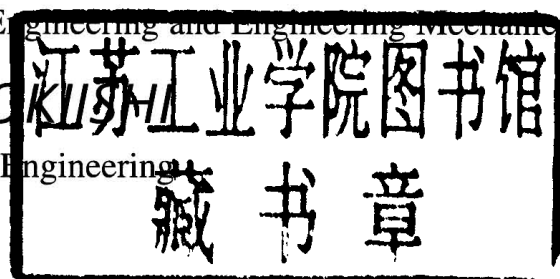 Engineering and Engineering Mechanic
江苏工业学院图书馆
KUSHI
Engineering
藏书章